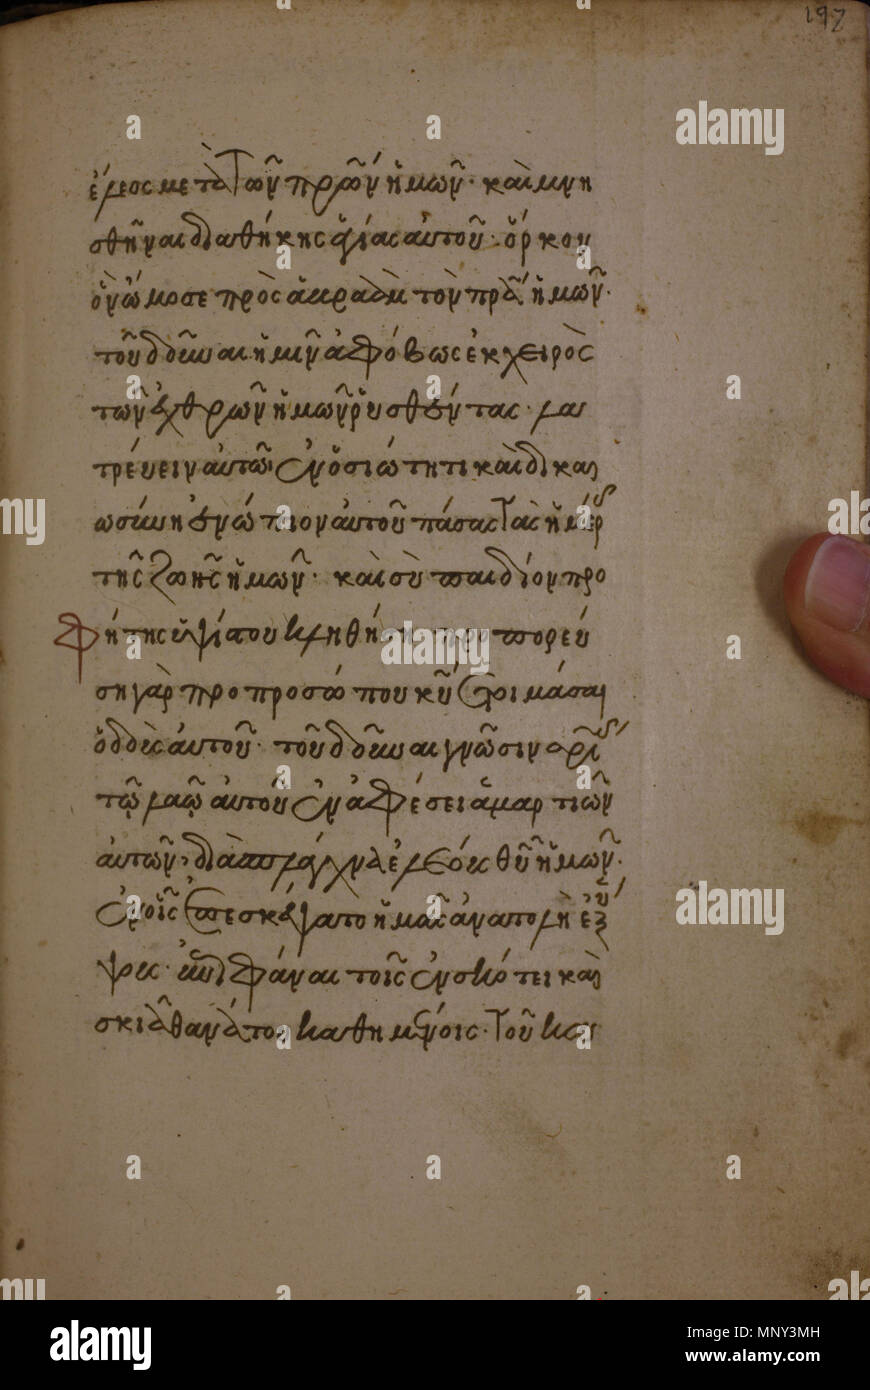 192
ἔλεος μετὰ τῶν πρων ἡμῶν· καὶ μνη
σθῆναι διαθήκης ἁγίας αὐτοῦ· ὅρκον
ὃν ὤμοσε πρὸς ἀβραὰμ τὸν πρα ἡμῶν·
τοῦ δοῦναι ἡμῖν ἀφόβως ἐκ χειρὸς
τῶν ἐχθρῶν ἡμῶν ῥυσθέντας· λα
τρέυειν αὐτῶ ἐν ὁσιώτητι καὶ δικαι
ωσύνη ἐνώπιον αὐτοῦ πάσας τὰς ἡμέρ
τῆς ζωῆς ἡμῶν· καὶ σὺ παιδίον προ
φήτης ὑψίστου κληθήση προπορεύ
ση γὰρ προ προσώπου κυ ἑτοιμάσαι
ὁδοὺς αὐτοῦ· τοῦ δοῦναι γνῶσιν σρι
τῷ λαῷ αὐτοῦ ἐν ἀφέσει ἁμαρτιῶν
αὐτῶν, διὰ σπλάγχνα ἐλέους θυ ἡμῶν·
ἐν οἷς ἐπεσκέψατο ἡμᾶς ἀνατολὴ ἐξ
ὕψους· ἐπιφάναι τοῖς ἐν σκότει καὶ
σκιᾶ θανάτου καθημένοις· τοῦ κατ
a
alamy
alamy stock photo
Image ID: MNY3MH
www.alamy.com